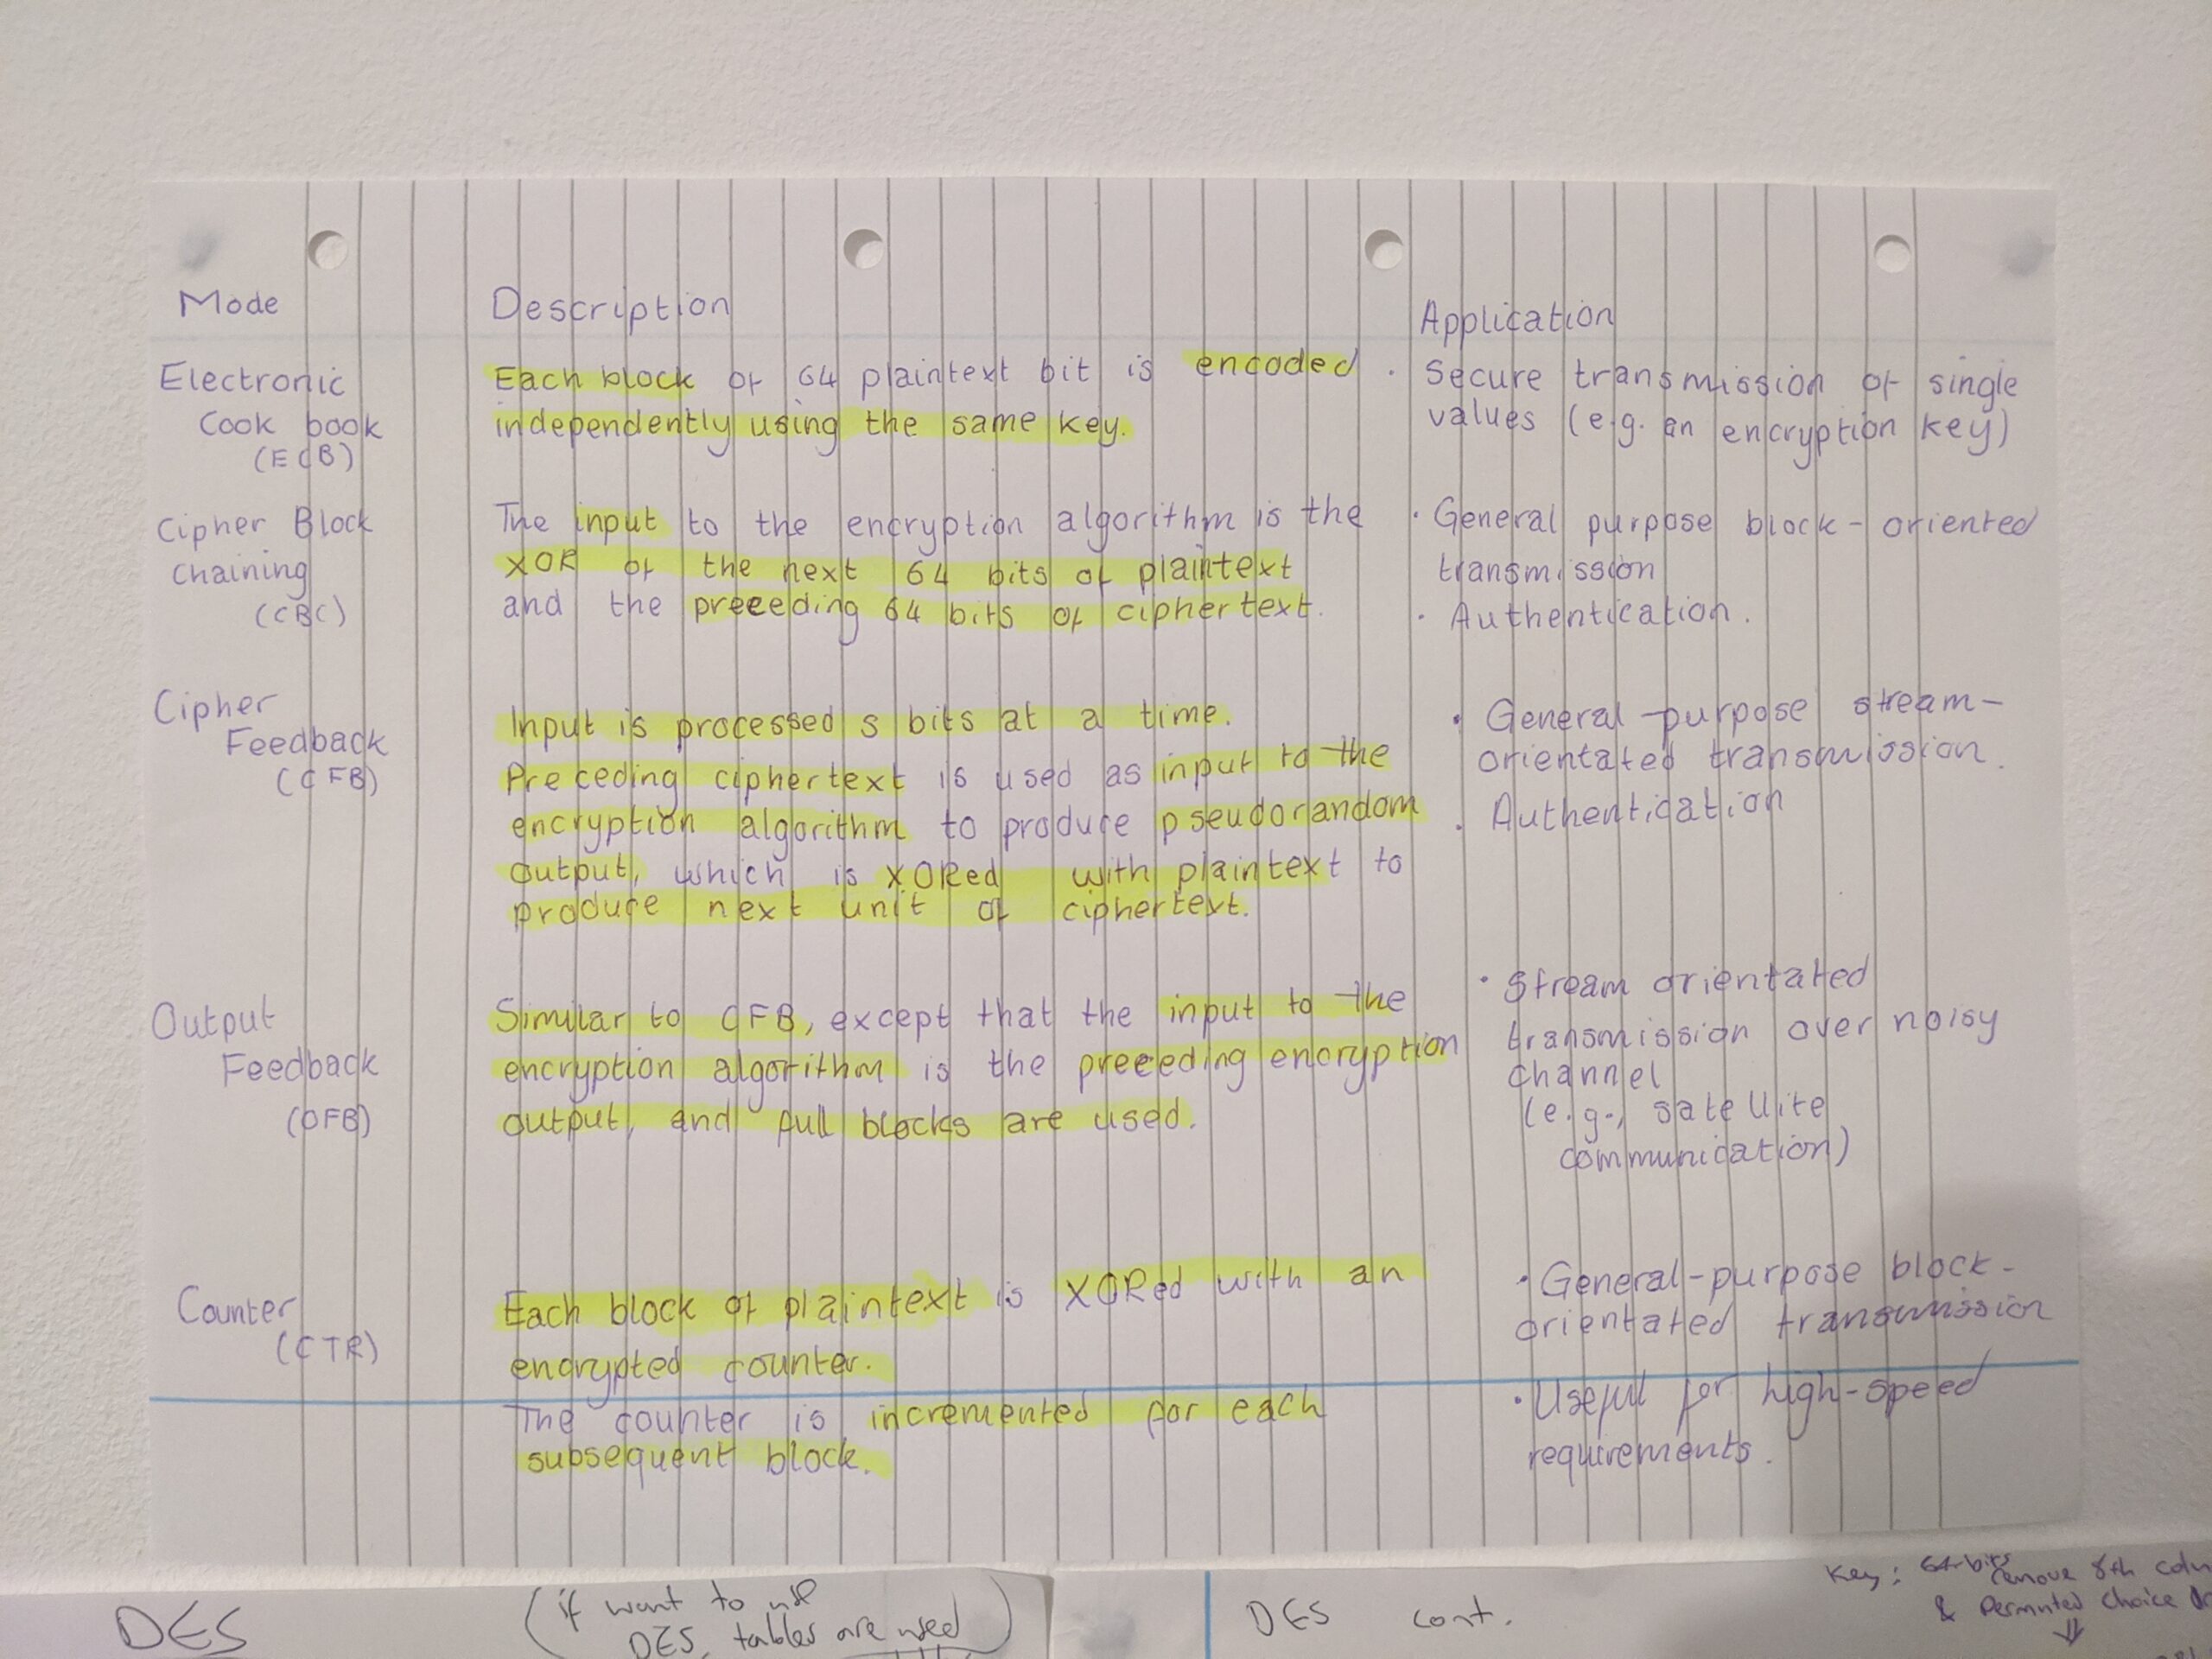 Mode
Description
Application
Electronic
Cook book
(ECB)
Each block of 64 plaintext bit is encoded
independently using the same key.
· Secure transmission of single
values (e.g. an encryption key)
Cipher Block
Chaining
(CBC)
The input to the encryption algorithm is the
XOR of the next 64 bits of plaintext
and the preceding 64 bits of ciphertext.
· General purpose block-oriented
transmission
· Authentication.
Cipher
Feedback
(CFB)
Input is processed s bits at a time.
Preceding ciphertext is used as input to the
encryption algorithm to produce pseudorandom
output, which is XORed with plaintext to
produce next unit of ciphertext.
· General-purpose stream-
orientated transmission.
· Authentication
Output
Feedback
(OFB)
Similar to CFB, except that the input to the
encryption algorithm is the preceding encryption
output, and full blocks are used.
· Stream orientated
transmission over noisy
channel
(e.g., satellite
communication)
Counter
(CTR)
Each block of plaintext is XORed with an
encrypted counter.
The counter is incremented for each
subsequent block.
· General-purpose block-
orientated transmission
· Useful for high-speed
requirements.
DES
(if want to use
DES, tables are used)
DES cont.
Key: 64-bits
remove 8th
& Permuted Choice